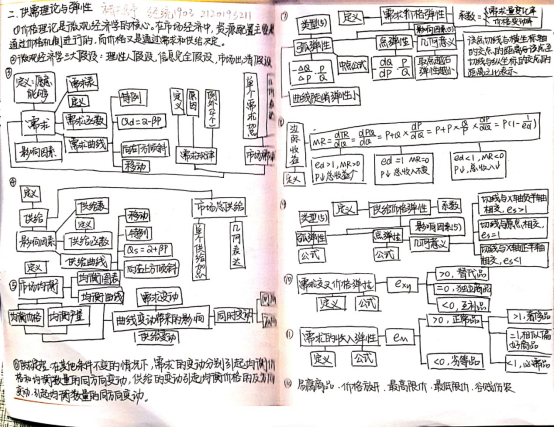 二、供需理论与弹性
①价格理论是微观经济学的核心。在市场经济中，资源配置主要是
通过价格机制进行的，而价格又是通过需求和供给决定。
②微观经济学三大假设：理性人假设，信息完全假设，市场出清假设
③
定义：愿意，能够
需求表
定义
需求
需求函数
需求曲线
影响因素
特例
Qd=α-βP
向右下方倾斜
移动
定义
原因
需求法则
市场需求
④
定义
供给
影响因素
供给表
供给函数
供给曲线
移动
特例
Qs=-α+βP
向右上方倾斜
市场总供给
几何表达
⑤
定义
市场均衡
均衡图表
均衡曲线
均衡价格
均衡产量
需求变动
曲线变动带来的影响
同时变动
供给变动
⑥供求定理：在其他条件不变的情况下，需求的变动分别引起均衡价
格和均衡数量的同方向变动，供给的变动引起均衡价格的反方向
变动，引起均衡数量的同方向变动。
⑦
类型(5)
定义
需求价格弹性
系数=需求量变化率/价格变动率
影响因素(5)
弧弹性
点弹性
几何意义
-ΔQ/ΔP P/Q
中点公式
-dQ/dP P/Q
曲线陡峭弹性小
⑧
边际收益
定义
MR=dTR/dQ=dPQ/dQ=P+Q×dP/dQ=P+P×Q/P×dP/dQ=P(1-1/ed)
ed>1,MR>0
P↓总收益↑
ed=1 MR=0
P↓总收入不变
ed<1,MR<0
P↓总收入↓
⑨
类型(5)
定义
供给价格弹性
系数
弧弹性
点弹性
影响因素(5)
几何意义
公式
公式
切线与X轴负半轴相交，es>1
切线与原点相交，es=1
切线与X轴正半轴相交，es<1
⑩
需求交叉价格弹性
exy
定义
公式
>0,替代品
=0,独立商品
<0,互补品
⑪
需求的收入弹性
em
定义
公式
>0,正常品
<0,劣等品
>1,奢侈品
<1,必需品
⑫易腐商品·价格放开·最高限价·最低限价·谷贱伤农